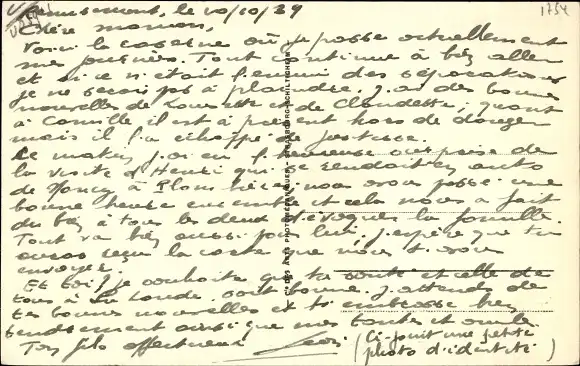 Remiremont, le 20/10/39
1754
Chère maman,
Voici la caserne où je passe actuellement
mes journées. Tout continue à bien aller
et si ce n'était l'ennui des séparations
je ne serais pas à plaindre. J'ai des bonnes
nouvelles de Louisette et de Claudette; quant
à Camille il est à présent hors de danger
mais il l'a échappé de justesse.
Ce matin j'ai eu l'heureuse surprise de
la visite d'Henri qui se rendait en auto
de Nancy à Plombières; nous avons passé une
bonne heure ensemble et cela nous a fait
du bien à tous les deux d'évoquer la famille
Tout va bien aussi pour lui; j'espère que tu
auras reçu la carte que nous t'avons
envoyée.
Et toi? je souhaite que ta santé et celle de
tous à La Londe soit bonne. J'attends de
tes bonnes nouvelles et t'embrasse bien
tendrement ainsi que mes tantes et oncle
Ton fils affectueux
(Ci-joint une petite
photo d'identité)